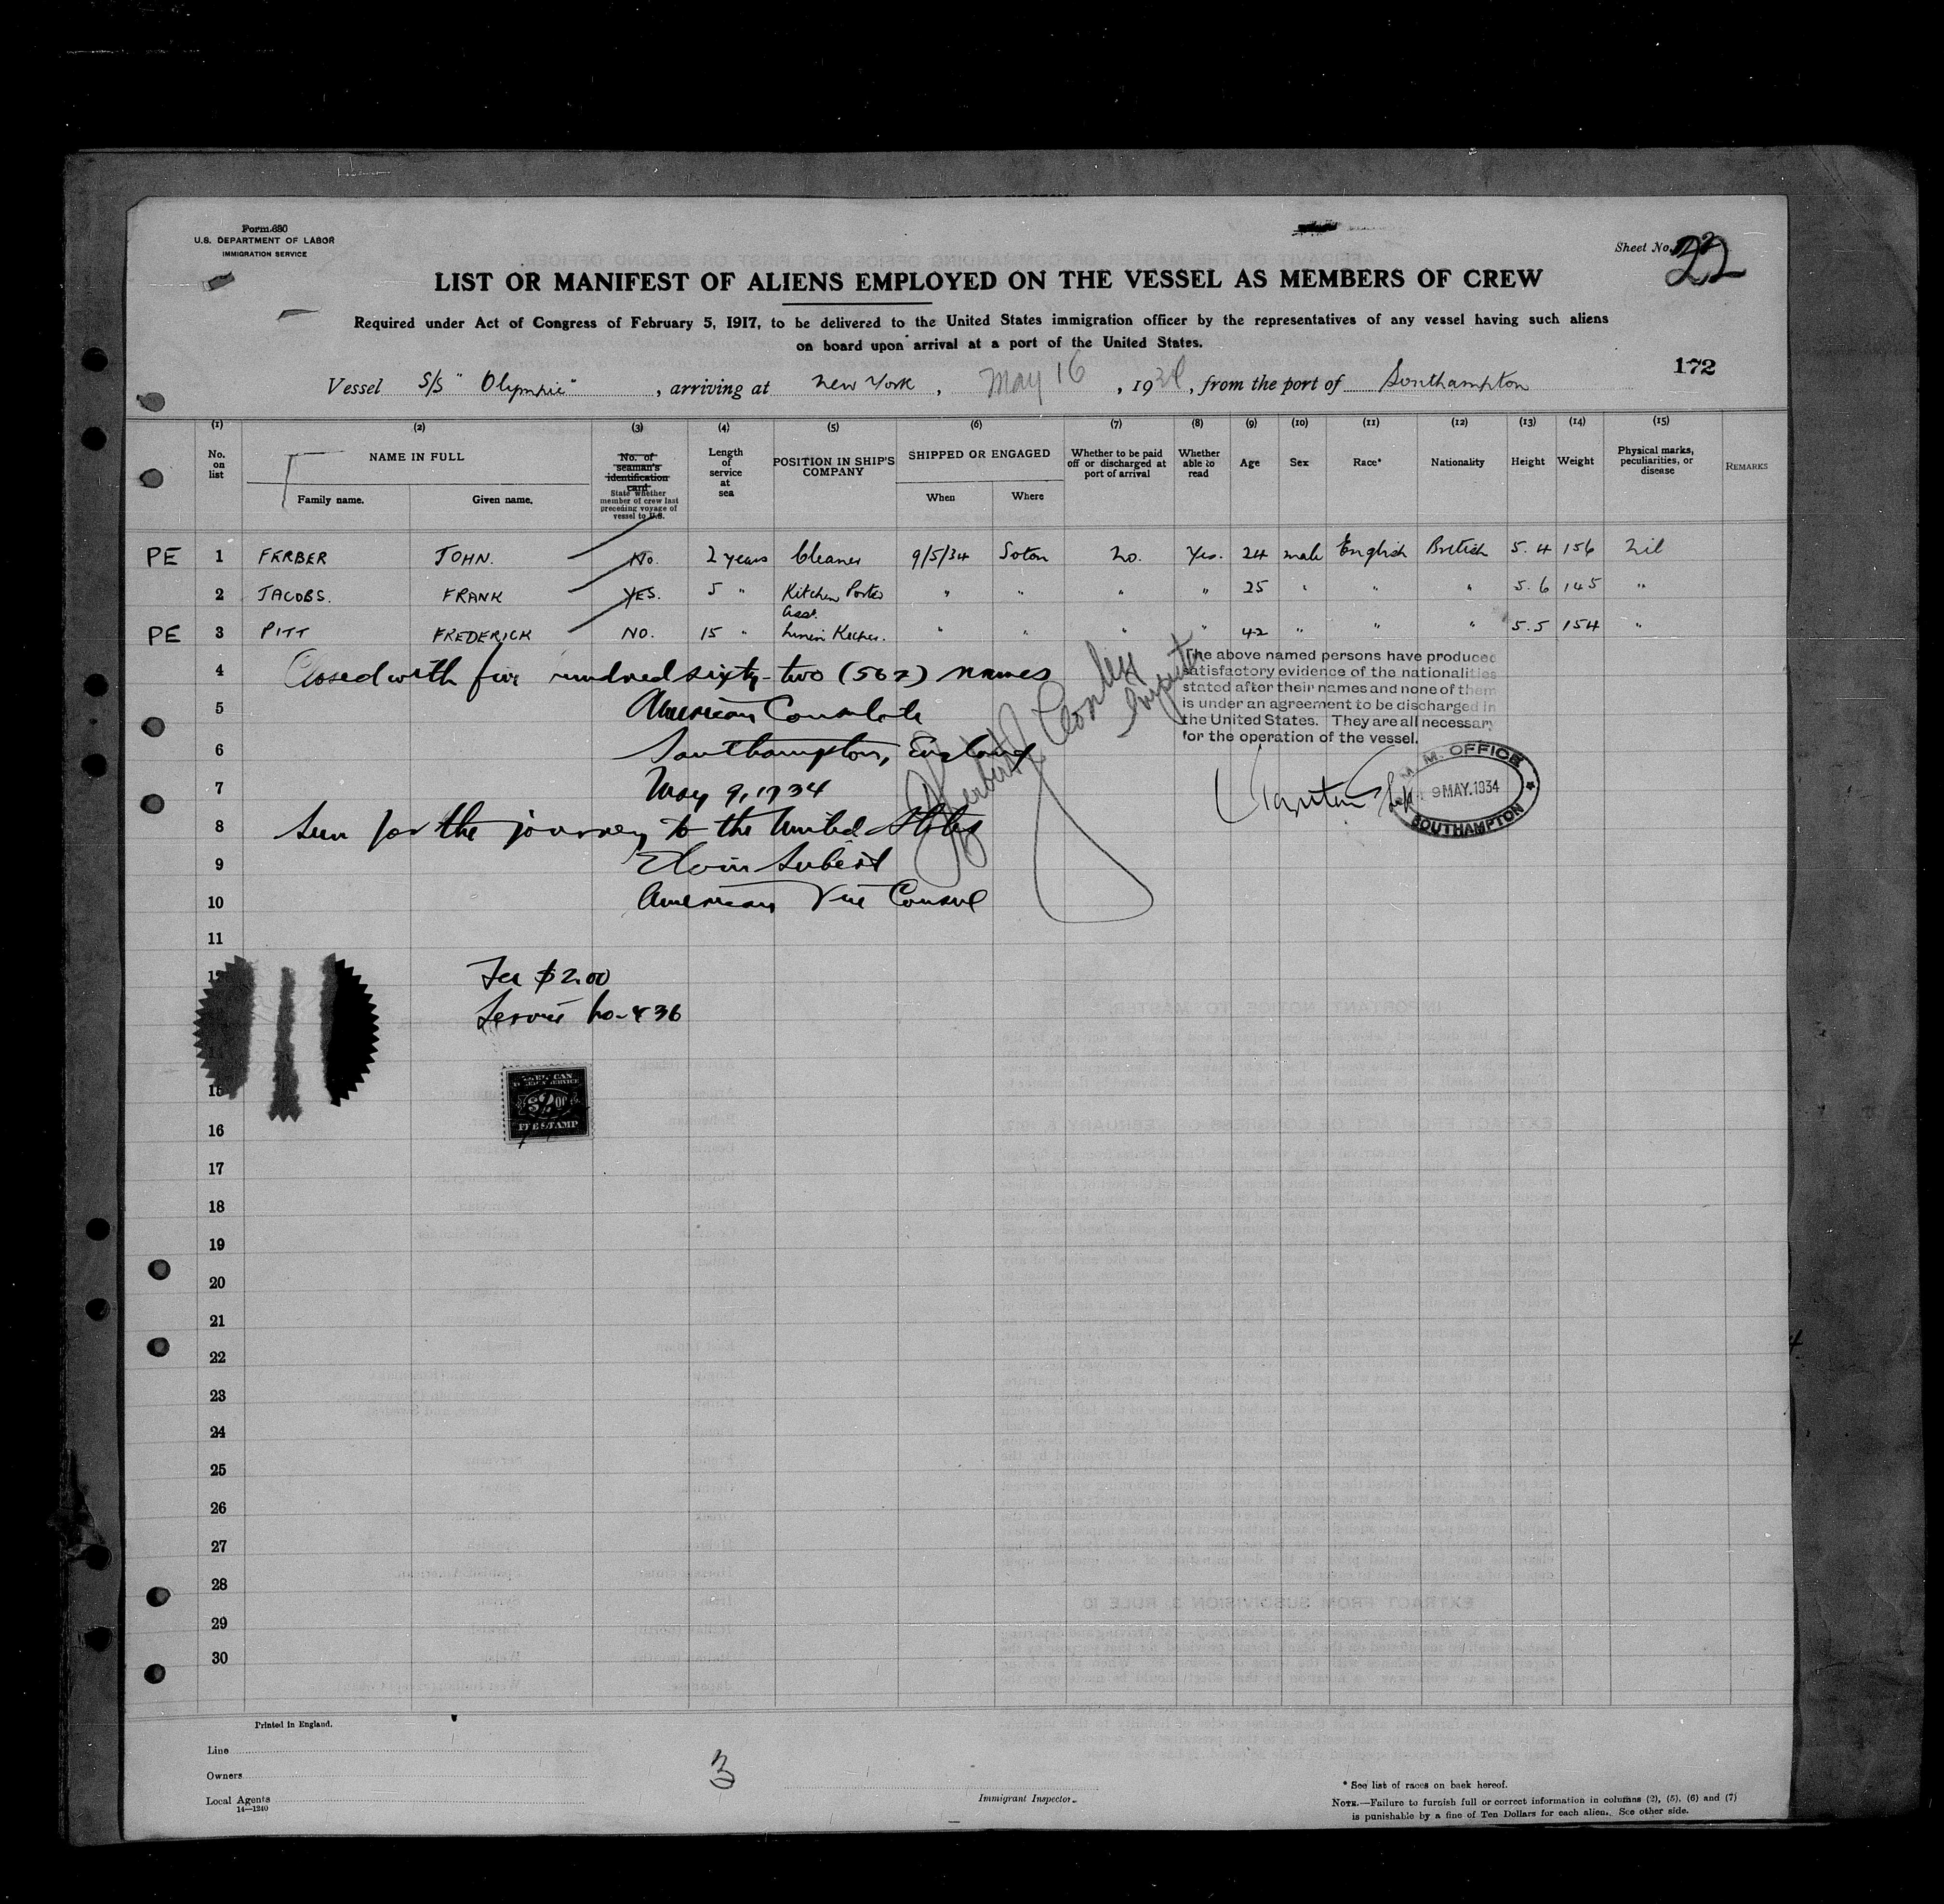 Form 680
U.S. DEPARTMENT OF LABOR
IMMIGRATION SERVICE
Sheet No. 22
LIST OR MANIFEST OF ALIENS EMPLOYED ON THE VESSEL AS MEMBERS OF CREW
Required under Act of Congress of February 5, 1917, to be delivered to the United States immigration officer by the representatives of any vessel having such aliens
on board upon arrival at a port of the United States.
172
Vessel S/S "Olympic", arriving at New York, May 16, 1934, from the port of Southampton
(1) (2) (3) (4) (5) (6) (7) (8) (9) (10) (11) (12) (13) (14) (15)
No. on list
NAME IN FULL
Family name. Given name.
No. of seaman's identification card
State whether member of crew last preceding voyage of vessel to U.S.
Length of service at sea
POSITION IN SHIP'S COMPANY
SHIPPED OR ENGAGED
When Where
Whether to be paid off or discharged at port of arrival
Whether able to read
Age
Sex
Race*
Nationality
Height
Weight
Physical marks, peculiarities, or disease
REMARKS
PE 1 FERBER JOHN. NO. 2 years Cleaner 9/5/34 Soton No. Yes. 24 male English British 5.4 156 Nil
2 JACOBS. FRANK YES. 5 " Kitchen Porter " " " " 25 " " " 5.6 145 "
PE 3 PITT FREDERICK NO. 15 " Asst. Linen Keeper. " " " " 42 " " " 5.5 154 "
4 Closed with five hundred sixty-two (562) names
5 American Consulate
6 Southampton, England
7 May 9, 1934
8 Seen for the journey to the United States
9
10 American Vice Consul
The above named persons have produced
satisfactory evidence of the nationalities
stated after their names and none of them
is under an agreement to be discharged in
the United States. They are all necessary
for the operation of the vessel.
M.M. OFFICE
9 MAY. 1934
SOUTHAMPTON
11
12 Fee $2.00
Service No. 436
14
15
AMERICAN
FOREIGN SERVICE
$2.00
FEE STAMP
16
17
18
19
20
21
22
23
24
25
26
27
28
29
30
Printed in England.
Line
Owners
Local Agents
14—1240
3
Immigrant Inspector.
* See list of races on back hereof.
NOTE.—Failure to furnish full or correct information in columns (2), (5), (6) and (7)
is punishable by a fine of Ten Dollars for each alien. See other side.